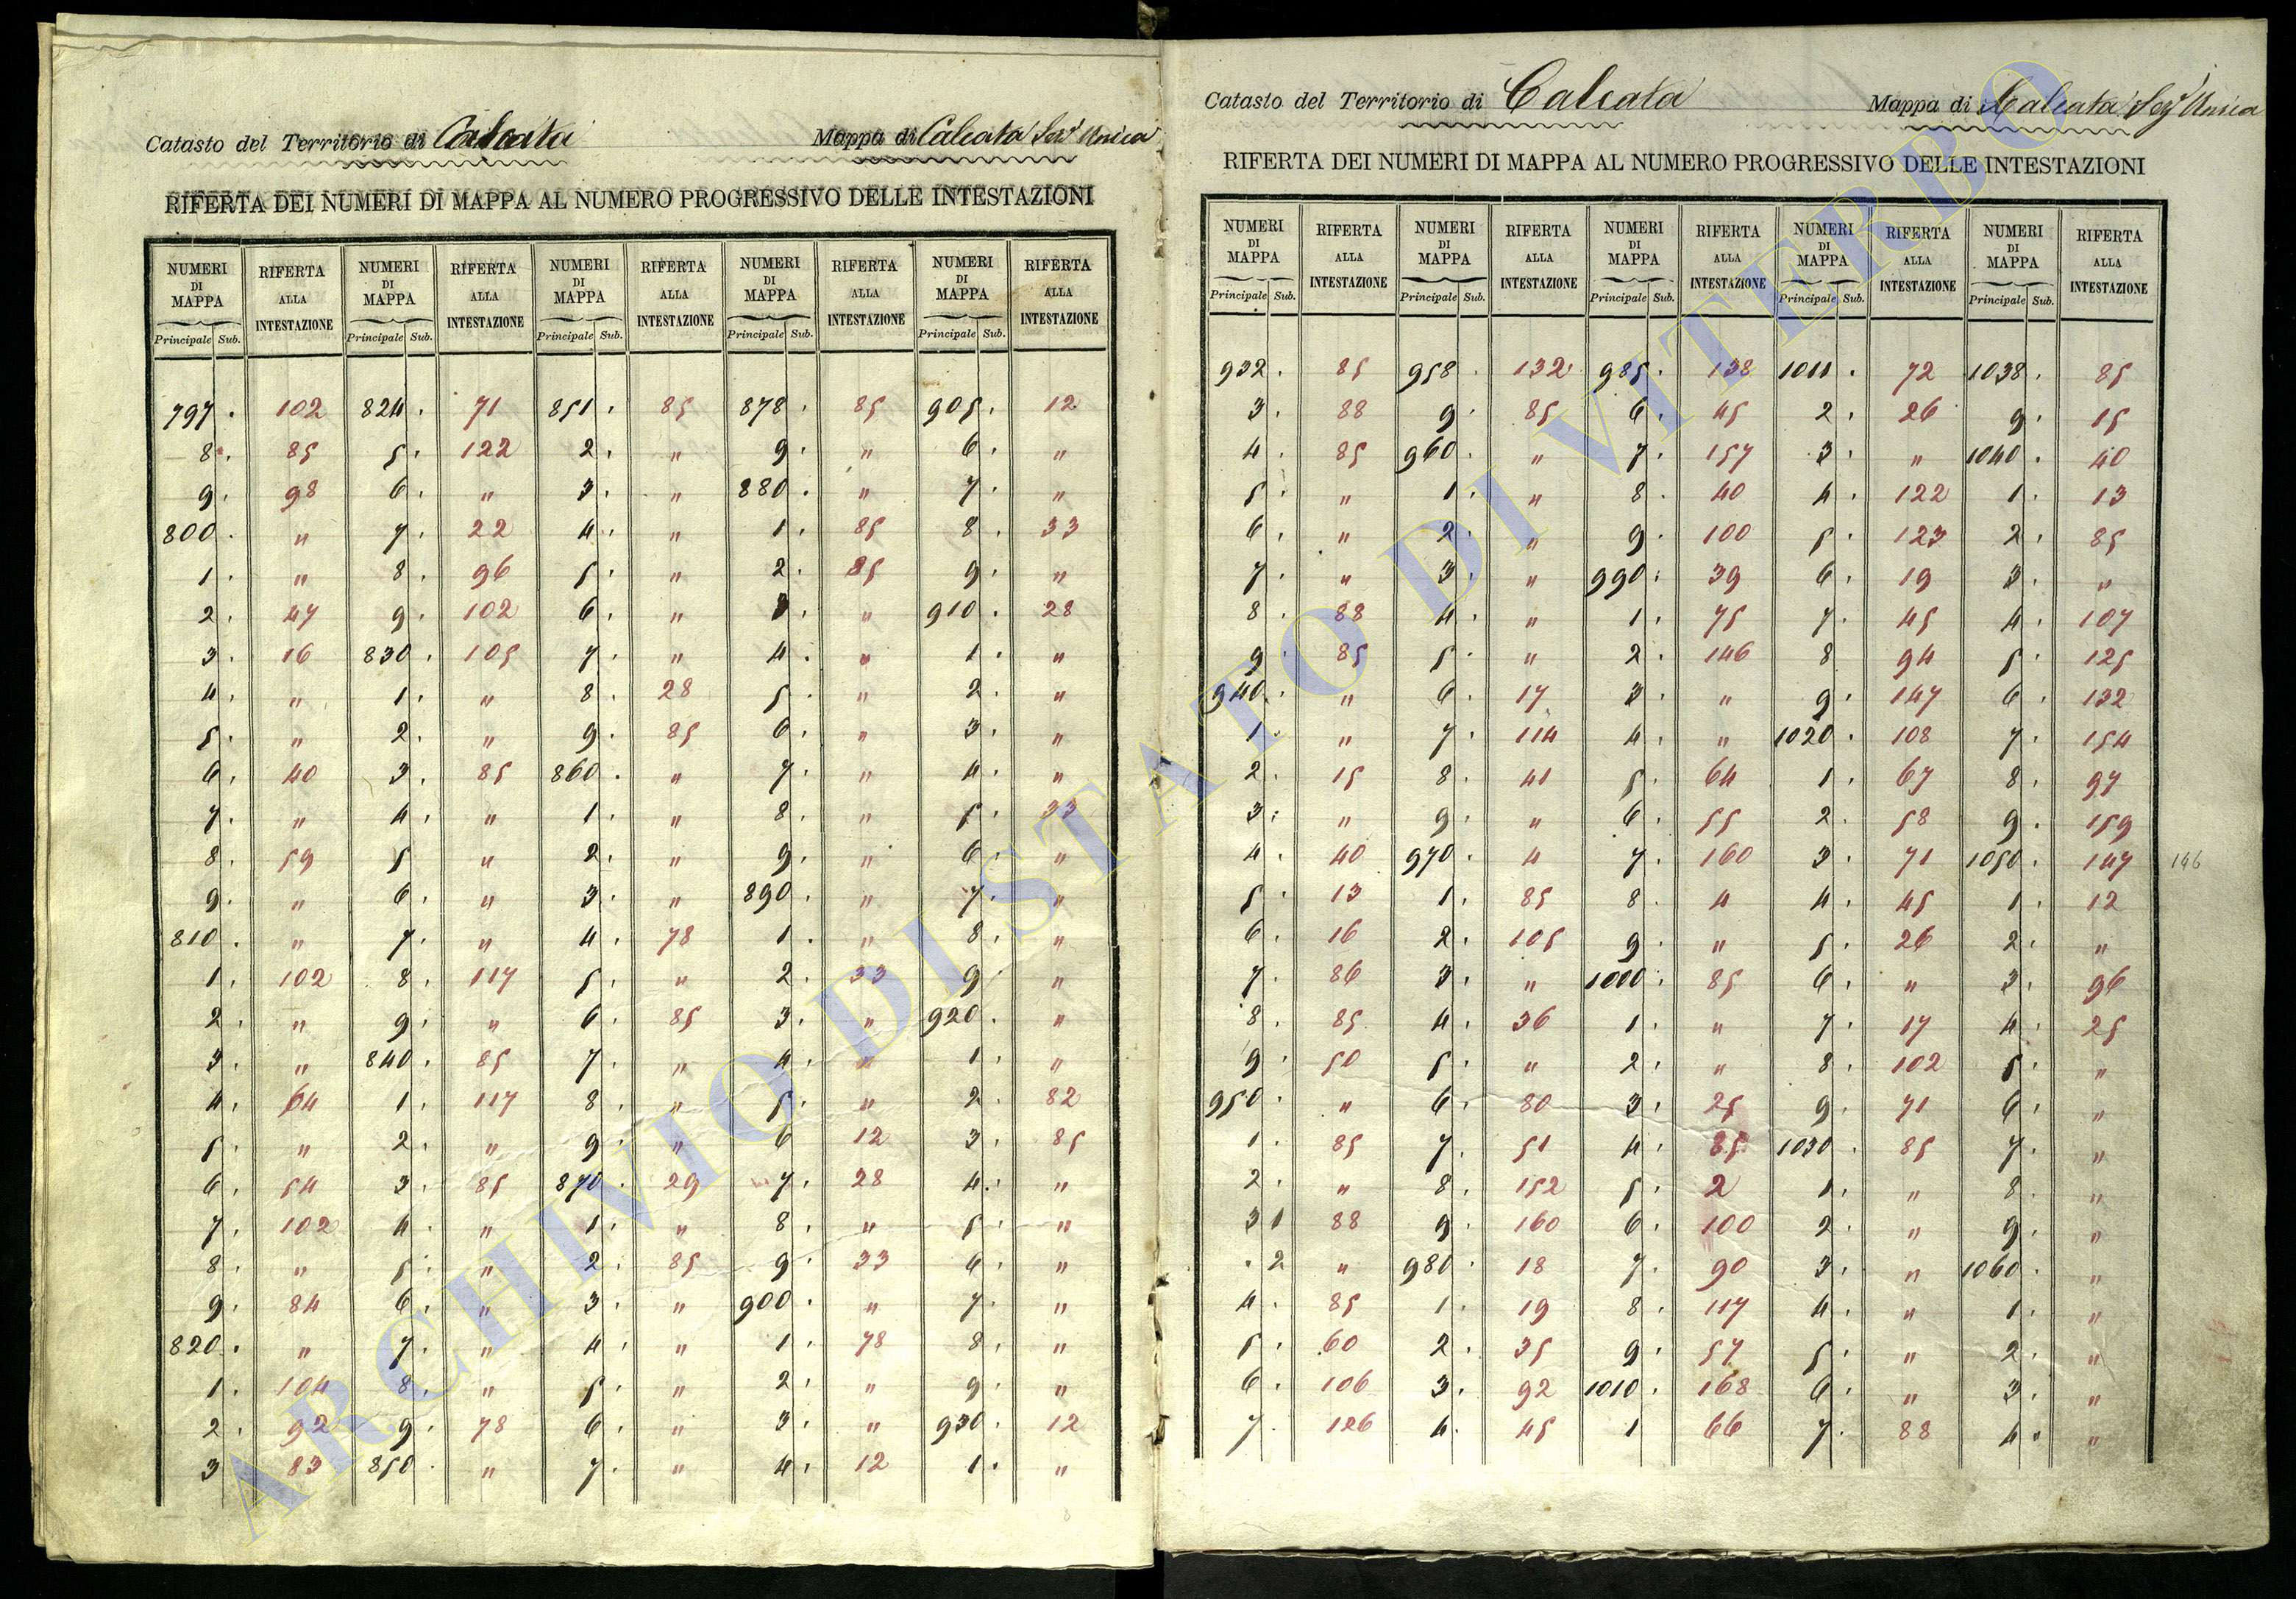 Catasto del Territorio di Calcata Mappa di Calcata Sezᵉ Unica
RIFERTA DEI NUMERI DI MAPPA AL NUMERO PROGRESSIVO DELLE INTESTAZIONI
NUMERI DI MAPPA RIFERTA ALLA INTESTAZIONE NUMERI DI MAPPA RIFERTA ALLA INTESTAZIONE NUMERI DI MAPPA RIFERTA ALLA INTESTAZIONE NUMERI DI MAPPA RIFERTA ALLA INTESTAZIONE NUMERI DI MAPPA RIFERTA ALLA INTESTAZIONE
Principale Sub. Principale Sub. Principale Sub. Principale Sub. Principale Sub.
797 . 102 824 . 71 851 . 85 878 . 85 905 . 12
8 . 85 5 . 122 2 . " 9 . " 6 . "
9 . 98 6 . " 3 . " 880 . " 7 . "
800 . " 7 . 22 4 . " 1 . 85 8 . 33
1 . " 8 . 96 5 . " 2 . 85 9 . "
2 . 47 9 . 102 6 . " 3 . " 910 . 28
3 . 16 830 . 105 7 . " 4 . " 1 . "
4 . " 1 . " 8 . 28 5 . " 2 . "
5 . " 2 . " 9 . 85 6 . " 3 . "
6 . 40 3 . 85 860 . " 7 . " 4 . "
7 . " 4 . " 1 . " 8 . " 5 . 33
8 . 59 5 " 2 . " 9 . " 6 . "
9 . " 6 . " 3 . " 890 . " 7 . "
810 . " 7 . " 4 . 78 1 . " 8 . "
1 . 102 8 . 117 5 . " 2 . 33 9 . "
2 . " 9 . " 6 . 85 3 . " 920 . "
3 . " 840 . 85 7 . " 4 . " 1 . "
4 . 64 1 . 117 8 . " 5 . " 2 . 82
5 . " 2 . " 9 . " 6 12 3 . 85
6 . 54 3 . 85 870 . 29 7 . 28 4 . "
7 . 102 4 . " 1 . " 8 . " 5 . "
8 . " 5 . " 2 . 85 9 . 33 6 . "
9 . 84 6 . " 3 . " 900 . " 7 . "
820 . " 7 . " 4 . " 1 . 78 8 . "
1 . 104 8 . " 5 . " 2 . " 9 . "
2 . 92 9 . 78 6 . " 3 . " 930 . 12
3 83 850 . " 7 . " 4 . 12 1 . "
Catasto del Territorio di Calcata Mappa di Calcata Sezᵉ Unica
RIFERTA DEI NUMERI DI MAPPA AL NUMERO PROGRESSIVO DELLE INTESTAZIONI
NUMERI DI MAPPA RIFERTA ALLA INTESTAZIONE NUMERI DI MAPPA RIFERTA ALLA INTESTAZIONE NUMERI DI MAPPA RIFERTA ALLA INTESTAZIONE NUMERI DI MAPPA RIFERTA ALLA INTESTAZIONE NUMERI DI MAPPA RIFERTA ALLA INTESTAZIONE
Principale Sub. Principale Sub. Principale Sub. Principale Sub. Principale Sub.
932 . 85 958 . 132 985 . 138 1011 . 72 1038 . 85
3 . 88 9 . 85 6 . 45 2 . 26 9 . 15
4 . 85 960 . " 7 . 157 3 . " 1040 . 40
5 . " 1 . " 8 . 40 4 . 122 1 . 13
6 . " 2 . " 9 . 100 5 . 123 2 . 85
7 . " 3 . " 990 . 39 6 . 19 3 . "
8 . 88 4 . " 1 . 75 7 . 45 4 . 107
9 . 85 5 . " 2 . 146 8 94 5 . 125
940 . " 6 . 17 3 . " 9 . 147 6 . 132
1 . " 7 . 114 4 . " 1020 . 108 7 . 154
2 . 15 8 . 41 5 . 64 1 . 67 8 . 97
3 . " 9 . " 6 . 55 2 . 58 9 . 159
4 . 40 970 . 4 7 . 160 3 . 71 1050 . 147 146
5 . 13 1 . 85 8 . 4 4 . 45 1 . 12
6 . 16 2 . 105 9 . " 5 . 26 2 . "
7 . 86 3 . " 1000 . 85 6 . " 3 . 96
8 . 85 4 . 36 1 . " 7 . 17 4 . 25
9 . 50 5 . " 2 . " 8 . 102 5 . "
950 . " 6 . 80 3 . 25 9 . 71 6 . "
1 . 85 7 . 51 4 . 85 1030 . 85 7 . "
2 . " 8 . 152 5 . 2 1 . " 8 . "
3 1 88 9 . 160 6 . 100 2 . " 9 . "
. 2 " 980 . 18 7 . 90 3 . " 1060 . "
4 . 85 1 . 19 8 . 117 4 . " 1 . "
5 . 60 2 . 35 9 . 57 5 . " 2 . "
6 . 106 3 . 92 1010 . 168 6 . " 3 . "
7 . 126 4 . 45 1 66 7 . 88 4 . "
ARCHIVIO DI STATO DI VITERBO